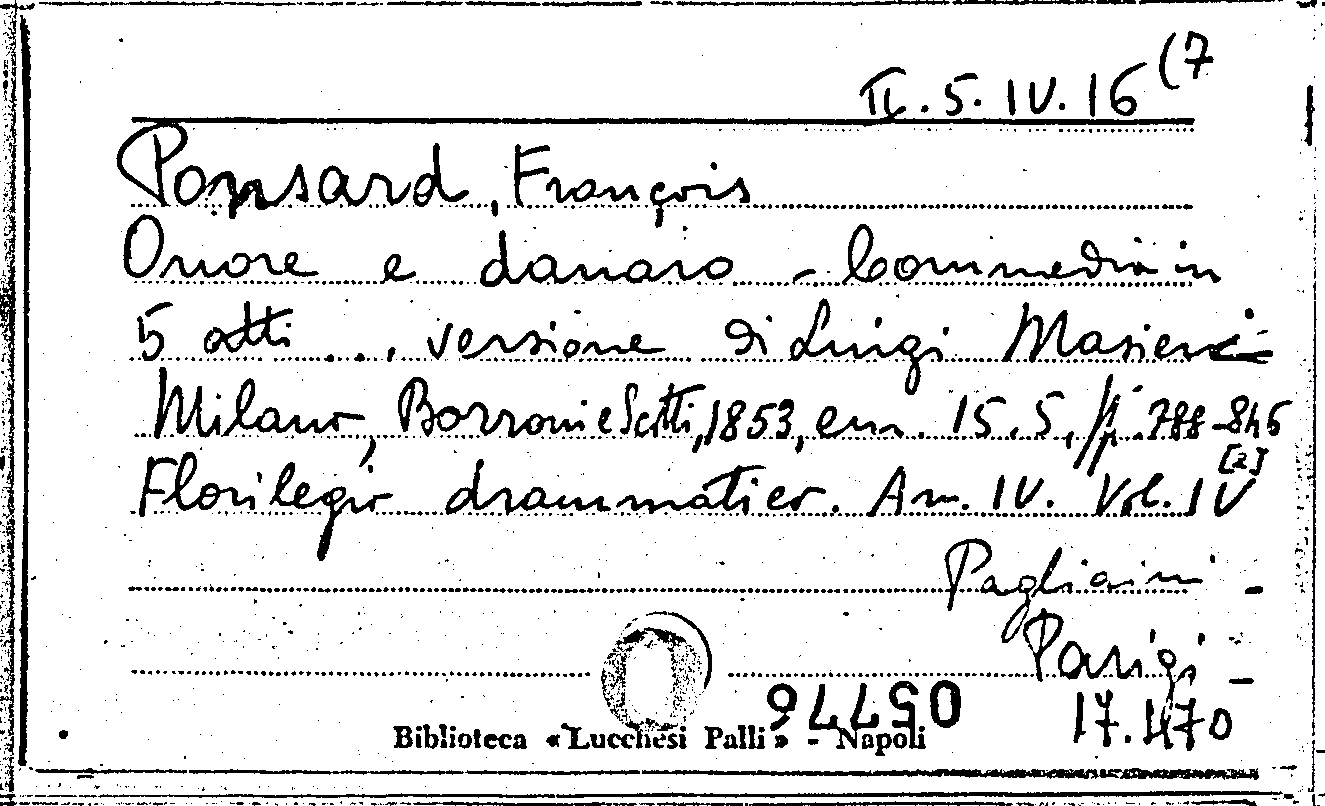 II. 5. IV. 16 (7
Ponsard, François
Onore e danaro - Commedia in
5 atti ... versione di Luigi Masieri
Milano, Borroni e Scotti, 1853, cm. 15.5, pp. 788-845
[2]
Florilegio drammatico. An. IV. Vol. IV
Pagliaini -
Parigi -
17.470
05776
Biblioteca «Lucchesi Palli» - Napoli